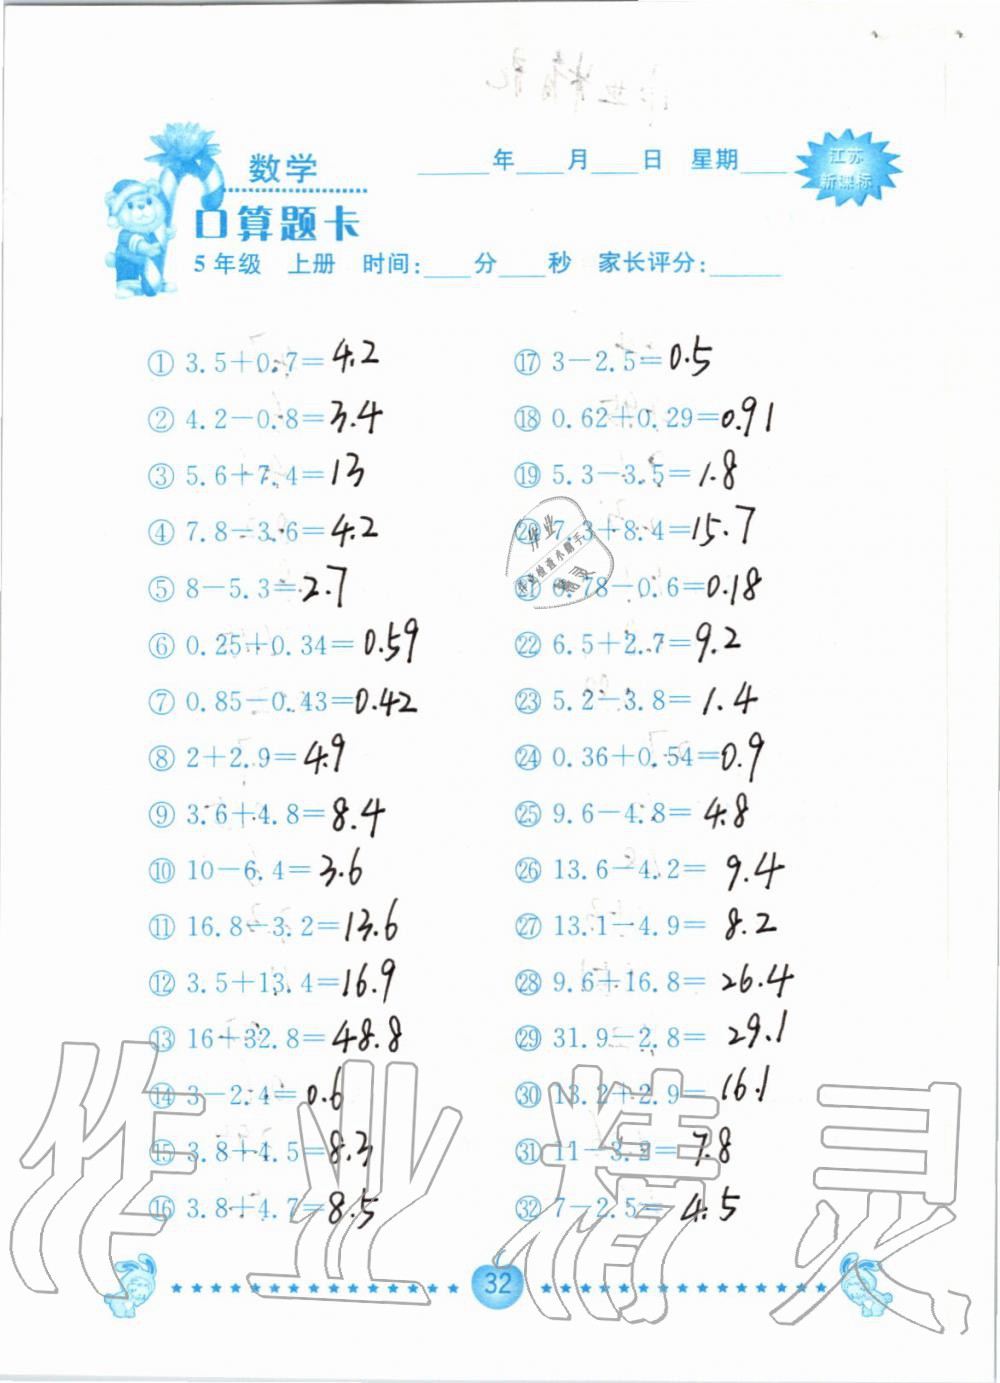 数学
____年____月____日 星期____
江苏
新课标
口算题卡
5年级 上册 时间:____分____秒 家长评分:____
① 3.5+0.7=4.2
② 4.2-0.8=3.4
③ 5.6+7.4=13
④ 7.8-3.6=4.2
⑤ 8-5.3=2.7
⑥ 0.25+0.34=0.59
⑦ 0.85-0.43=0.42
⑧ 2+2.9=4.9
⑨ 3.6+4.8=8.4
⑩ 10-6.4=3.6
⑪ 16.8-3.2=13.6
⑫ 3.5+13.4=16.9
⑬ 16+32.8=48.8
⑭ 3-2.4=0.6
⑮ 3.8+4.5=8.3
⑯ 3.8+4.7=8.5
⑰ 3-2.5=0.5
⑱ 0.62+0.29=0.91
⑲ 5.3-3.5=1.8
⑳ 7.3+8.4=15.7
㉑ 0.78-0.6=0.18
㉒ 6.5+2.7=9.2
㉓ 5.2-3.8=1.4
㉔ 0.36+0.54=0.9
㉕ 9.6-4.8=4.8
㉖ 13.6-4.2=9.4
㉗ 13.1-4.9=8.2
㉘ 9.6+16.8=26.4
㉙ 31.9-2.8=29.1
㉚ 13.2+2.9=16.1
㉛ 11-3.2=7.8
㉜ 7-2.5=4.5
作业
作业检查小助手
精灵
作业精灵
32